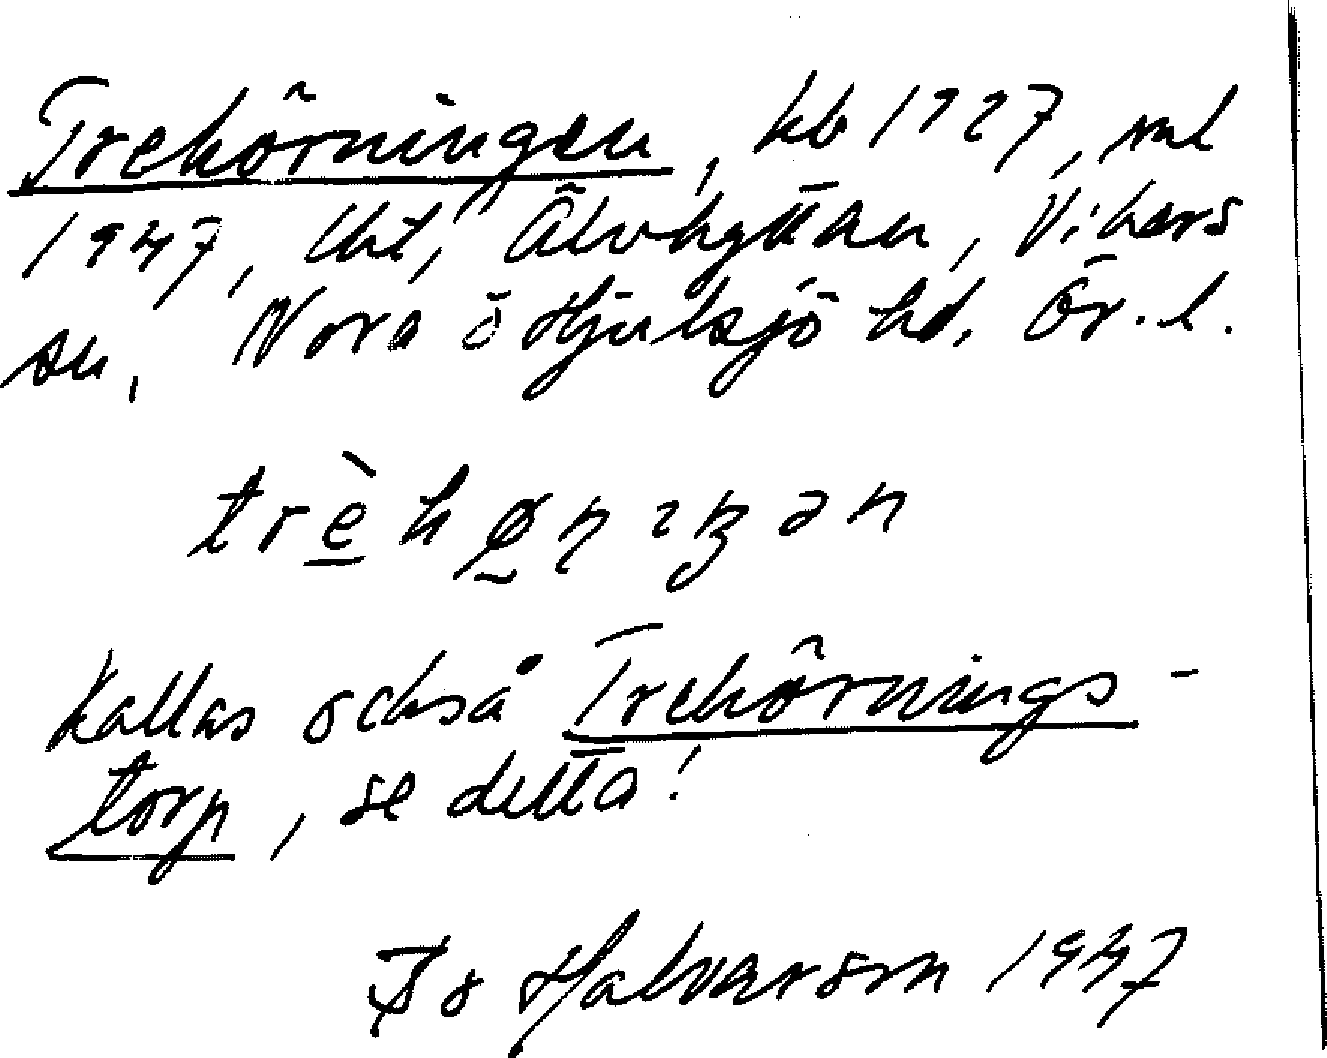 Trekörningen, kb 1727, ml
1947, lht, Älvhyttan, Vikers
sn, Nora o Hjulsjö hd. Ör. l.
trèkøɳɪŋən
Kallas också Trekörnings-
torp, se detta!
Bo Halvarson 1947